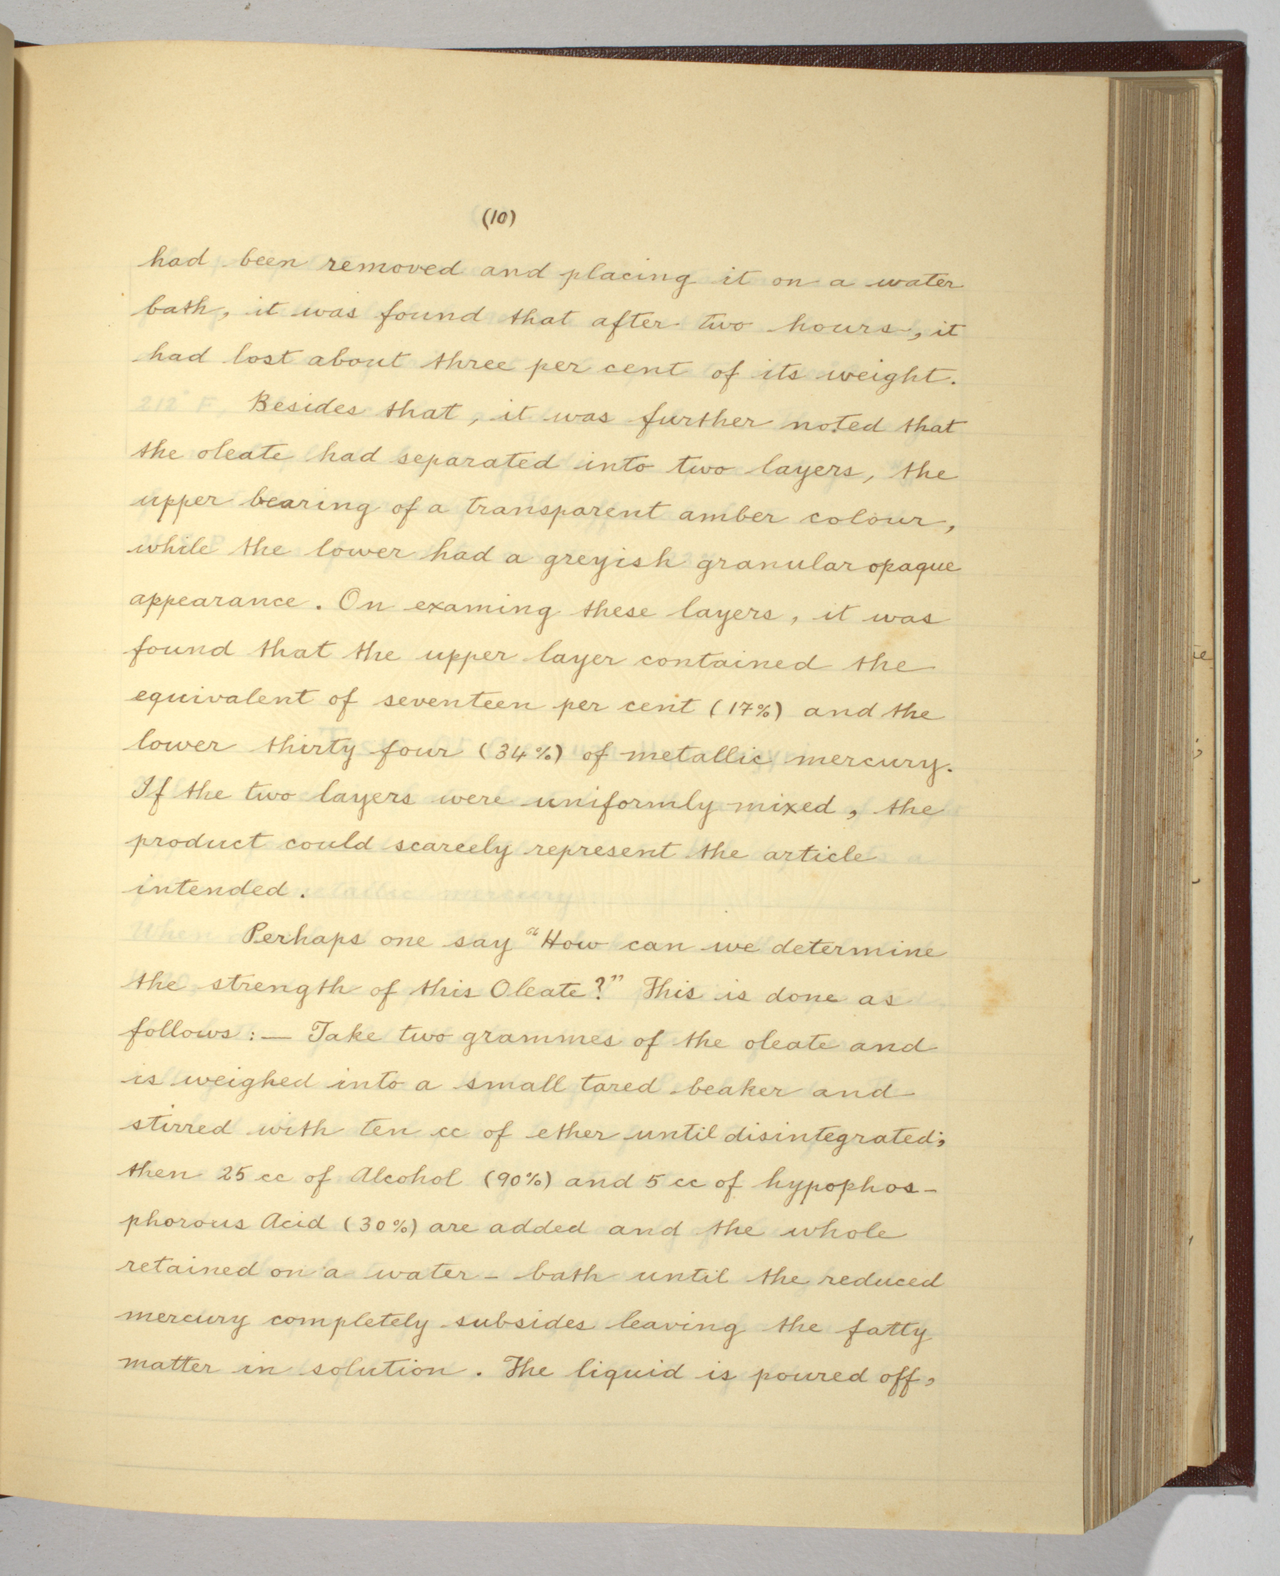 (10)
had been removed and placing it on a water
bath, it was found that after two hours, it
had lost about three per cent of its weight.
Besides that, it was further noted that
the oleate had separated into two layers, the
upper bearing of a transparent amber colour,
while the lower had a greyish granular opaque
appearance. On examing these layers, it was
found that the upper layer contained the
equivalent of seventeen per cent (17%) and the
lower thirty four (34%) of metallic mercury.
If the two layers were uniformly mixed, the
product could scarcely represent the article
intended.
Perhaps one say "How can we determine
the strength of this Oleate?" This is done as
follows:— Take two grammes of the oleate and
is weighed into a small tared beaker and
stirred with ten cc of ether until disintegrated;
then 25 cc of Alcohol (90%) and 5 cc of hypophos-
phorous Acid (30%) are added and the whole
retained on a water-bath until the reduced
mercury completely subsides leaving the fatty
matter in solution. The liquid is poured off,